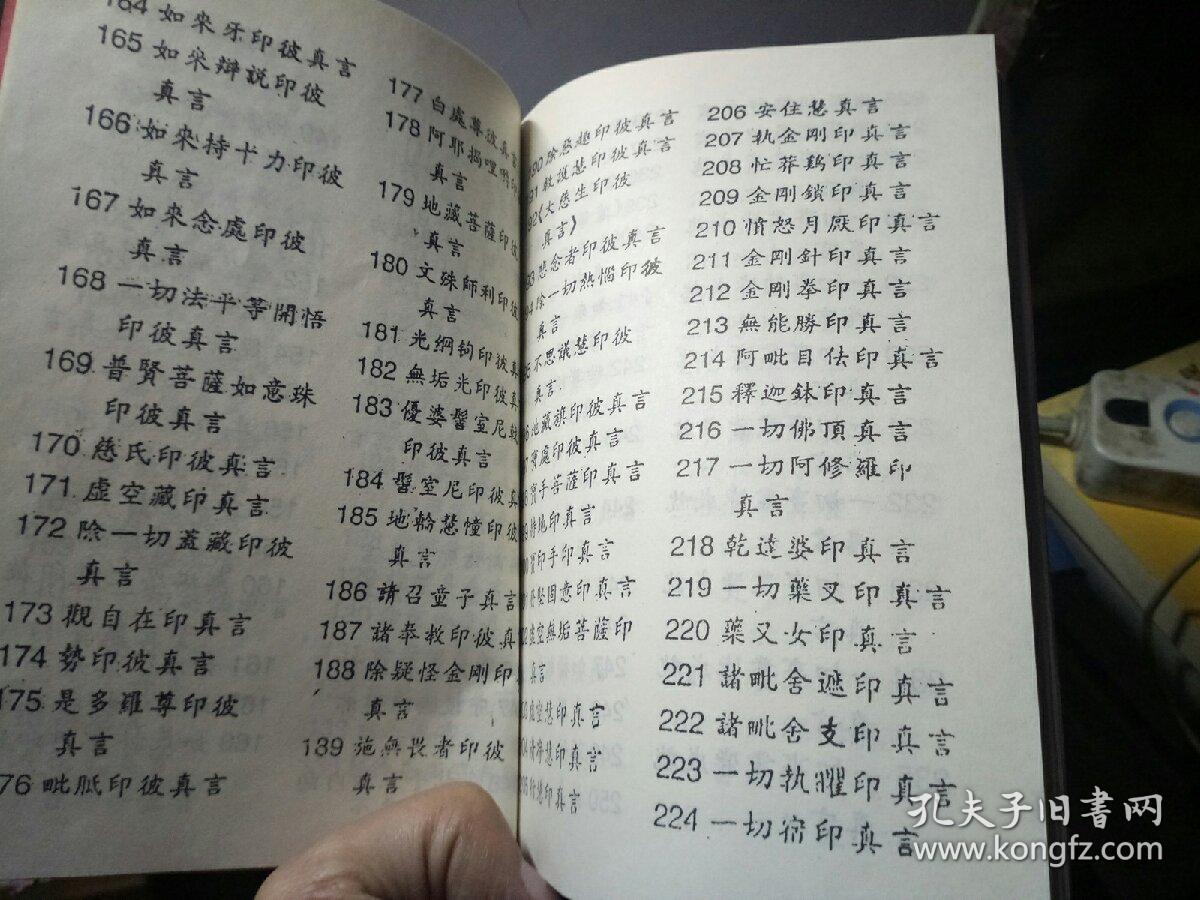 164 如來牙印彼真言
165 如來辯説印彼
真言
166 如來持十力印彼
真言
167 如來念處印彼
真言
168 一切法平等開悟
印彼真言
169 普賢菩薩如意珠
印彼真言
170 慈氏印彼真言
171 虛空藏印真言
172 除一切蓋藏印彼
真言
173 觀自在印真言
174 勢印彼真言
175 是多羅尊印彼
真言
76 毗胝印彼真言
177 白處尊彼真言
178 阿耶揭哩
真言
179 地藏菩薩印彼
真言
180 文殊師利印彼
真言
181 光網鉤印彼真
182 無垢光印彼真
183 優婆髻室尼
印彼真言
184 髻室尼印彼真
185 地輪慧憧印彼
真言
186 請召童子真言
187 諸奉教印彼真
188 除疑怪金剛印
真言
189 施無畏者印彼
真言
90 除惡趣印彼真言
91 救護慧印彼真言
92《大慈生印彼
真言》
93 悲念者印彼真言
94 除一切熱惱印彼
真言
不思議慧印彼
真言
地藏旗印彼真言
寶處印彼真言
寶手菩薩印真言
持地印真言
印手印真言
堅固意印真言
虛空無垢菩薩印
真言
虛空慧印真言
04 清淨慧印真言
行慧印真言
206 安住慧真言
207 执金剛印真言
208 忙莽鷄印真言
209 金剛鎖印真言
210 憤怒月厭印真言
211 金剛針印真言
212 金剛拳印真言
213 無能勝印真言
214 阿毗目佉印真言
215 釋迦鉢印真言
216 一切佛頂真言
217 一切阿修羅印
真言
218 乾達婆印真言
219 一切藥叉印真言
220 藥叉女印真言
221 諸毗舍遮印真言
222 諸毗舍支印真言
223 一切执曜印真言
224 一切宿印真言
孔夫子旧書网
www.kongfz.com